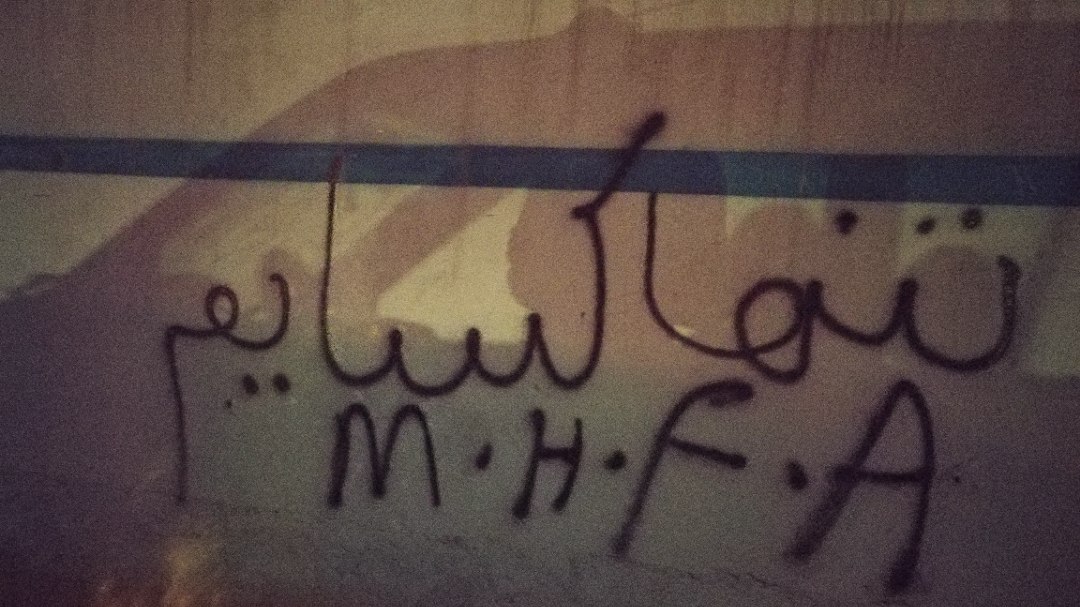 تنها کسایم
M.H.F.A